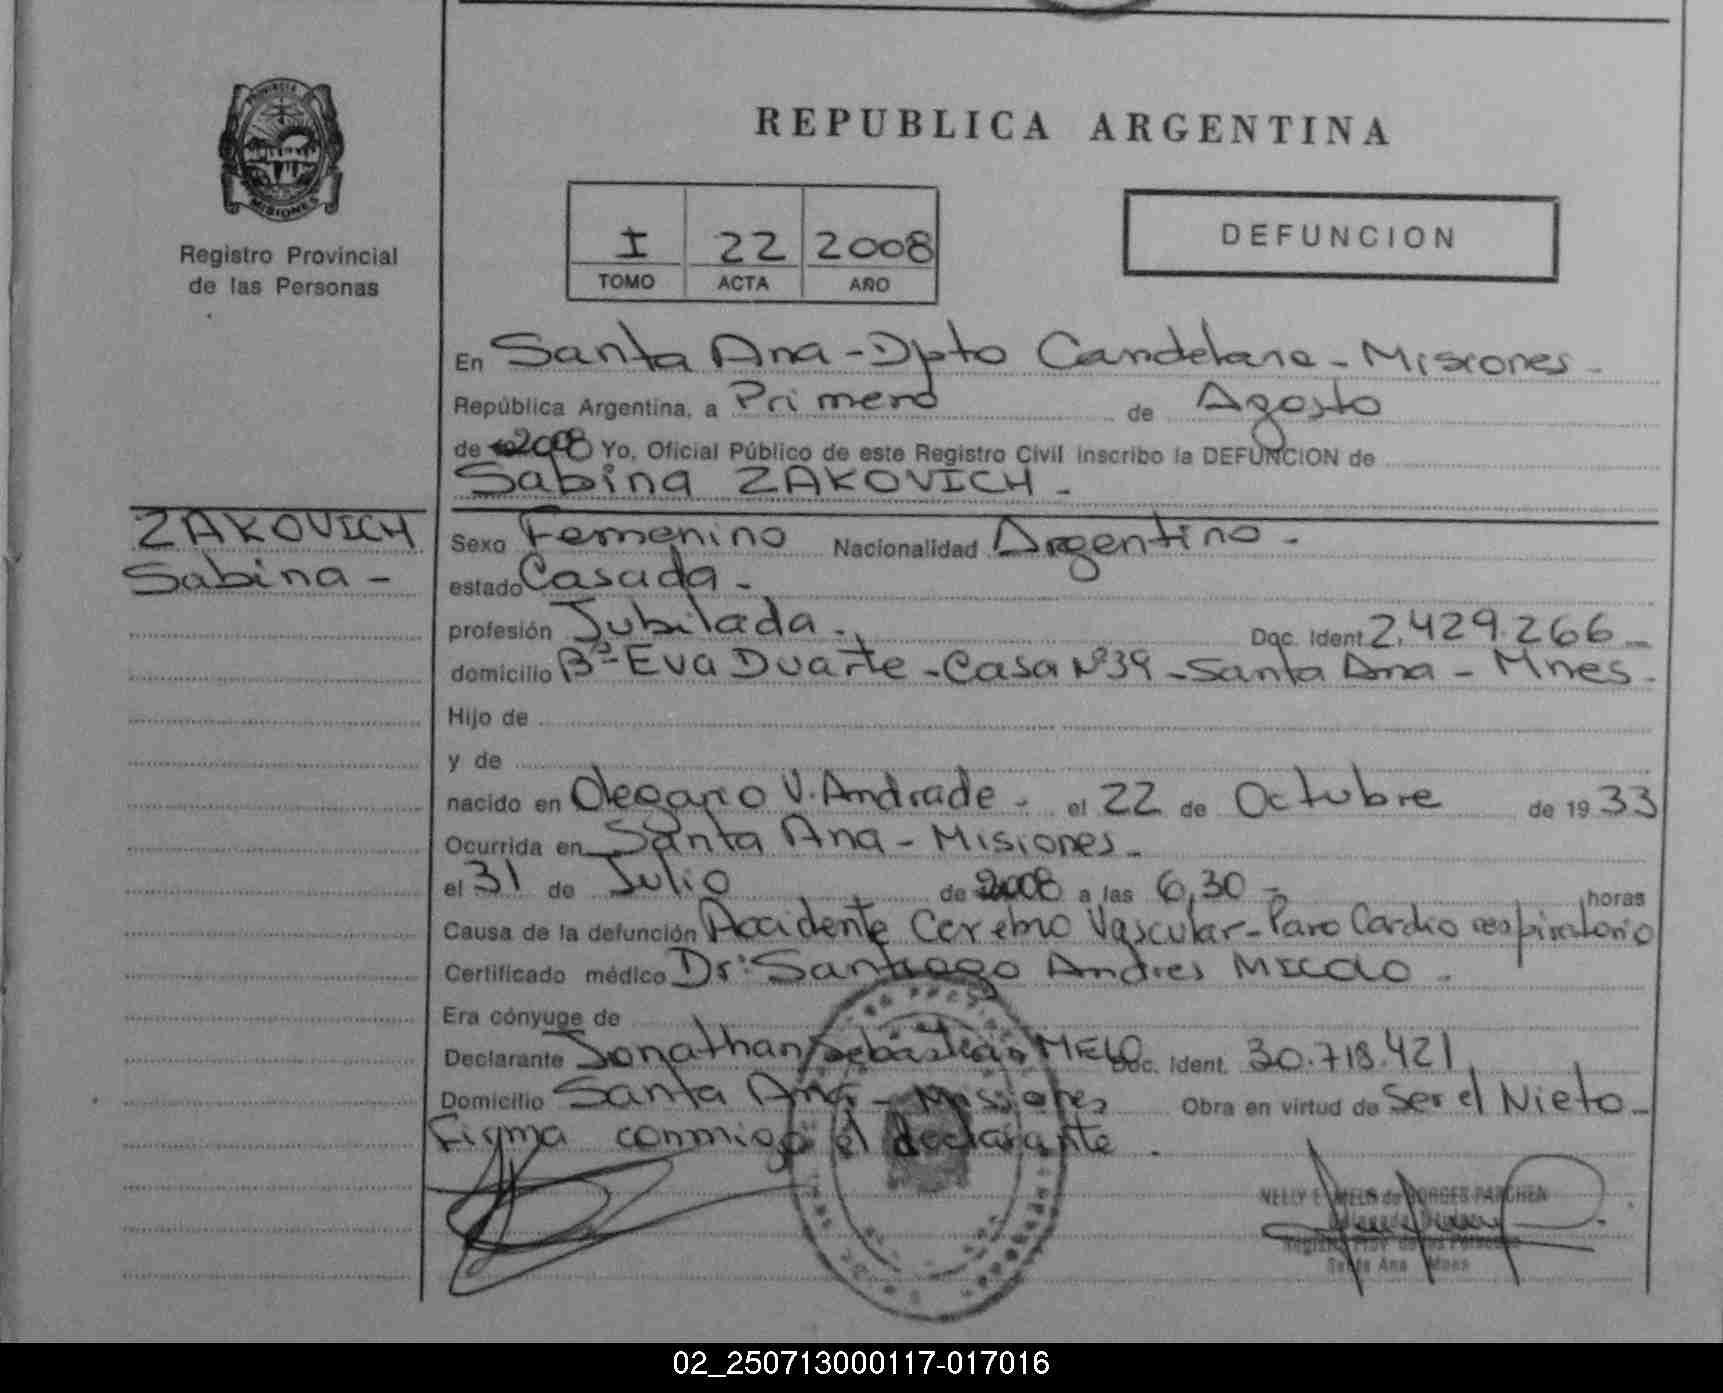 PROVINCIA
MISIONES
Registro Provincial
de las Personas
REPUBLICA ARGENTINA
I 22 2008
TOMO ACTA AÑO
DEFUNCION
En Santa Ana - Dpto Candelaria - Misiones -
República Argentina, a Primero de Agosto
de 2008 Yo, Oficial Público de este Registro Civil inscribo la DEFUNCION de
Sabina ZAKOVICH -
ZAKOVICH
Sabina -
Sexo Femenino Nacionalidad Argentino -
estado Casada -
profesión Jubilada. Doc. Ident 2.429.266
domicilio Bº Eva Duarte - Casa Nº 39 - Santa Ana - Mnes.
Hijo de
y de
nacido en Olegario V. Andrade - el 22 de Octubre de 1933
Ocurrida en Santa Ana - Misiones -
el 31 de Julio de 2008 a las 6,30 - horas
Causa de la defunción Accidente Cerebro Vascular - Paro Cardio respiratorio
Certificado médico Dr: Santiago Andres
Era cónyuge de
Declarante Jonathan Sebastian MELO Doc. Ident. 30.718.421
Domicilio Santa Ana - Misiones Obra en virtud de Ser el Nieto -
Firma conmigo el declarante.
NELLY E. MELO de BORGES PARCHEN
Registro Prov. de las Personas
Santa Ana Mnes
02_250713000117-017016